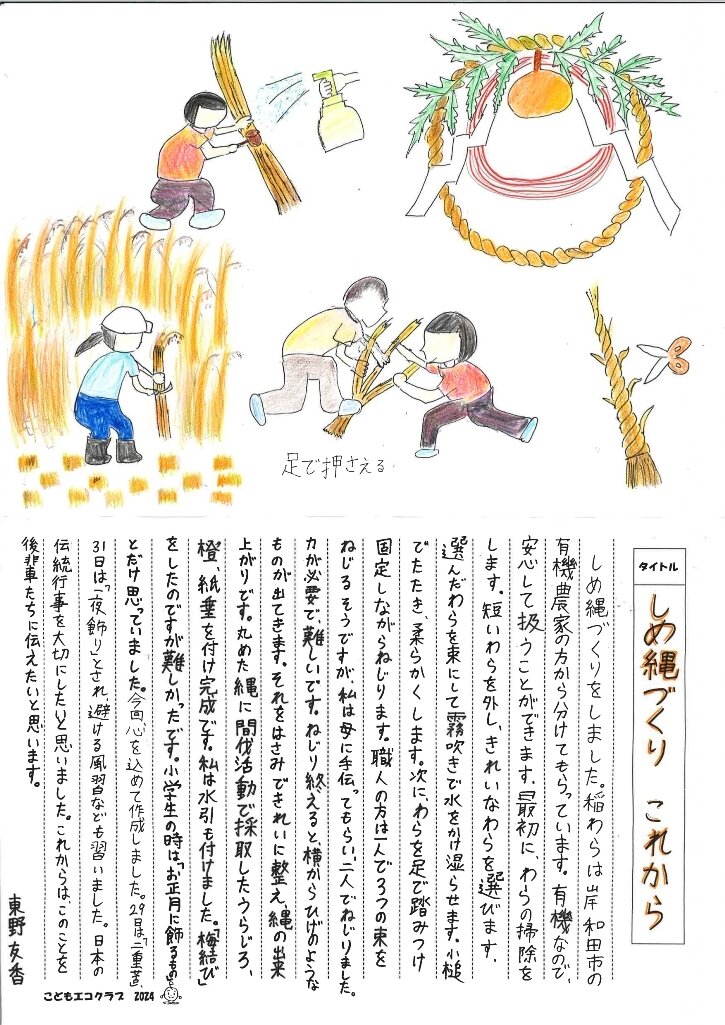 足で押さえる
タイトル
しめ縄づくり これから
しめ縄づくりをしました。稲わらは岸和田市の
有機農家の方から分けてもらっています。有機なので、
安心して扱うことができます。最初に、わらの掃除を
します。短いわらを外し、きれいなわらを選びます。
選んだわらを束にして霧吹きで水をかけ湿らせます。小槌
でたたき、柔らかくします。次に、わらを足で踏みつけ
固定しながらねじります。職人の方は一人で3つの束を
ねじるそうですが、私は母に手伝ってもらい、二人でねじりました。
力が必要で、難しいです。ねじり終えると、横からひげのような
ものが出てきます。それをはさみできれいに整え、縄の出来
上がりです。丸めた縄に間伐活動で採取したうらじろ、
橙、紙垂を付け完成です。私は水引も付けました。「梅結び」
をしたのですが難しかったです。小学生の時は、「お正月に飾るもの」
とだけ思っていました。今回心を込めて作成しました。29日は「二重苦」、
31日は「一夜飾り」とされ、避ける風習なども習いました。日本の
伝統行事を大切にしたいと思いました。これからは、このことを
後輩たちに伝えたいと思います。
東野友香
こどもエコクラブ 2024